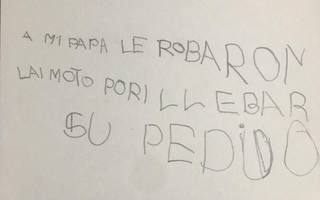 A MI PAPA LE ROBARON
LAI MOTO PORI LLEBAR
SU PEDIDO